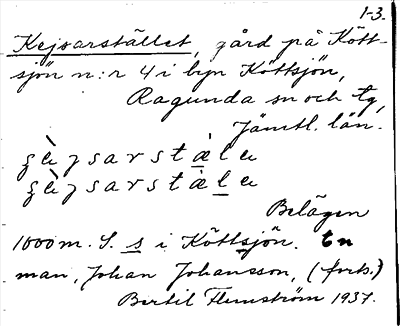 1-3.
Kejsarstället, gård på Kött-
sjön n:r 4 i byn Köttsjön,
Ragunda sn och tg,
Jämtl. län.
Belägen
1000 m. S. s i Köttsjön. En
man, Johan Johansson, (forts.)
Bertil Flemström 1937.